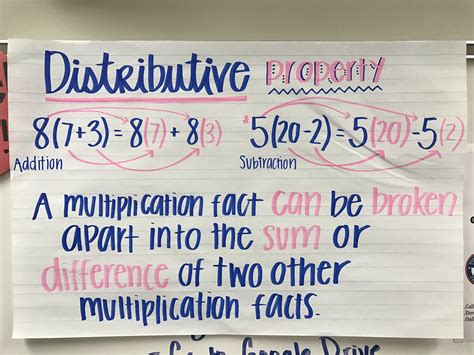 Distributive property
8(7+3)=8(7)+8(3) *5(20-2)=5(20)-5(2)
Addition Subtraction
A multiplication fact can be broken
apart into the sum or
difference of two other
multiplication facts.
Google Drive